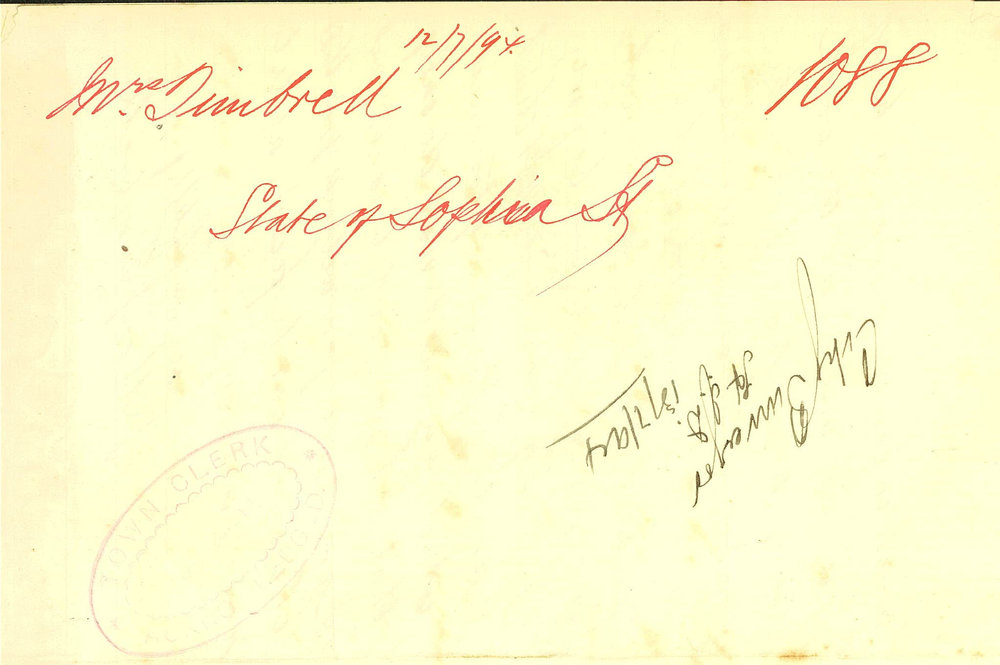 12/7/94.
Mrs. Timbrell 1088
State of Sophia St
City Surveyor
13/7/94
TOWN CLERK